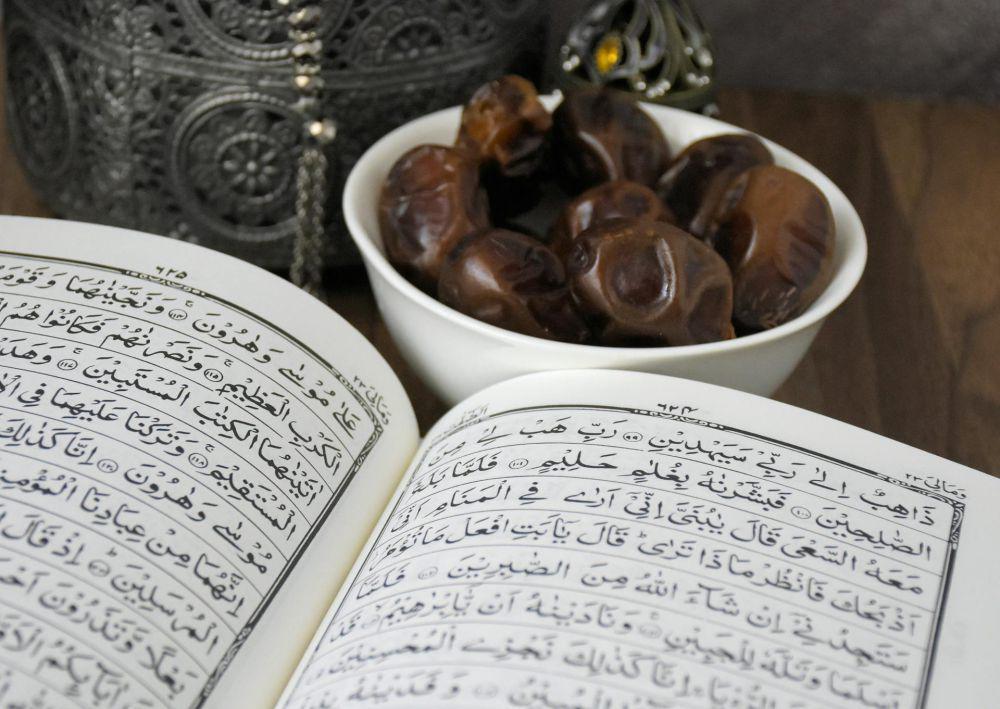 وَمَالِيَ ٢٣
٦٢٤
الصّٰفّٰت
ذَاهِبٌ اِلٰى رَبِّىْ سَيَهْدِيْنِ ﴿٩٩﴾ رَبِّ هَبْ لِىْ مِنَ
الصّٰلِحِيْنَ ﴿١٠٠﴾ فَبَشَّرْنٰهُ بِغُلٰمٍ حَلِيْمٍ ﴿١٠١﴾ فَلَمَّا بَلَغَ
مَعَهُ السَّعْىَ قَالَ يٰبُنَىَّ اِنِّىْٓ اَرٰى فِى الْمَنَامِ اَنِّىْٓ
اَذْبَحُكَ فَانْظُرْ مَاذَا تَرٰى قَالَ يٰٓاَبَتِ افْعَلْ مَا تُؤْمَرُ
سَتَجِدُنِىْٓ اِنْ شَآءَ اللّٰهُ مِنَ الصّٰبِرِيْنَ ﴿١٠٢﴾ فَلَمَّآ
اَسْلَمَا وَتَلَّهٗ لِلْجَبِيْنِ ﴿١٠٣﴾ وَنَادَيْنٰهُ اَنْ يّٰٓاِبْرٰهِيْمُ ﴿١٠٤﴾ قَدْ
الرُّءْيَا اِنَّا كَذٰلِكَ نَجْزِى الْمُحْسِنِيْنَ
الْمُبِيْنُ ﴿١٠٦﴾ وَفَدَيْنٰهُ
وَمَالِيَ ٢٣
٦٢٥
عَلٰى مُوْسٰى وَهٰرُوْنَ ﴿١١٤﴾ وَنَجَّيْنٰهُمَا وَقَوْمَ
الْكَرْبِ الْعَظِيْمِ ﴿١١٥﴾ وَنَصَرْنٰهُمْ فَكَانُوْا هُمُ
اٰتَيْنٰهُمَا الْكِتٰبَ الْمُسْتَبِيْنَ ﴿١١٧﴾
الْمُسْتَقِيْمَ ﴿١١٨﴾ وَتَرَكْنَا عَلَيْهِمَا فِى
مُوْسٰى وَهٰرُوْنَ ﴿١٢٠﴾ اِنَّا كَذٰلِكَ
اِنَّهُمَا مِنْ عِبَادِنَا
الْمُرْسَلِيْنَ ﴿١٢٣﴾ اِذْ قَالَ
بَعْلًا وَّتَذَرُوْنَ
اٰبَآئِكُمُ